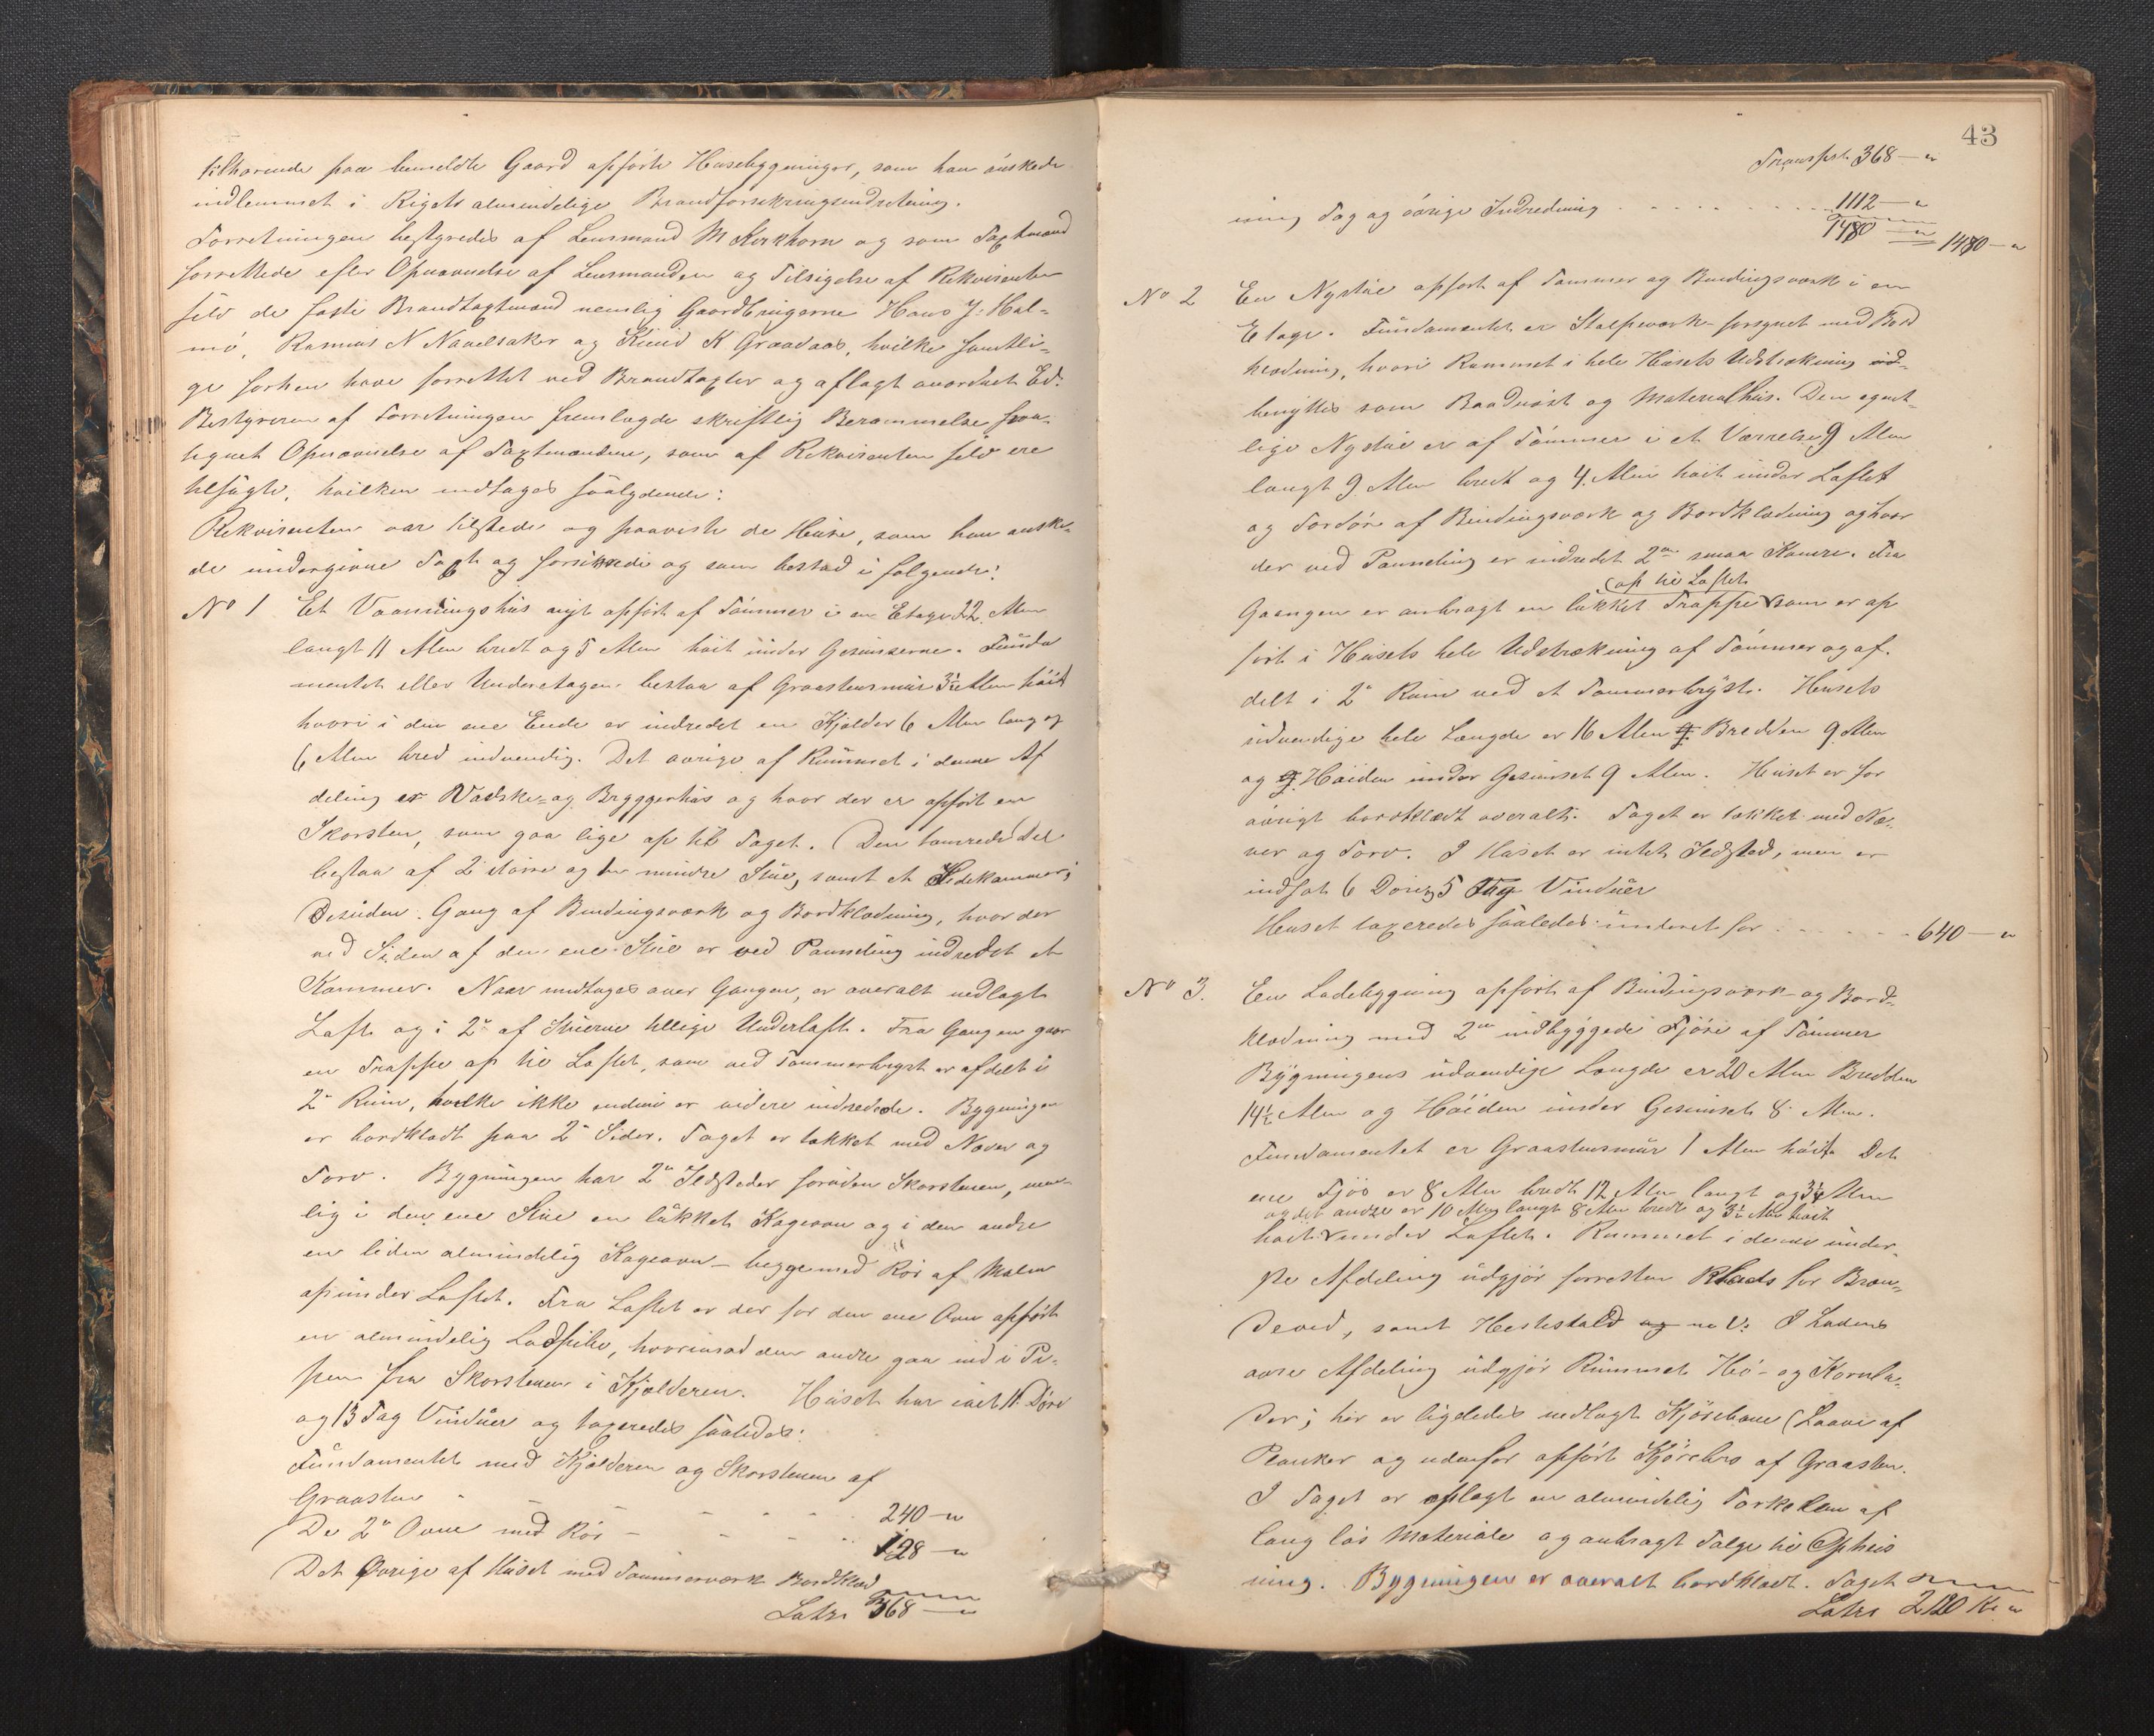 tilhørende paa bemeldte Gaard opførte Husebygninger, som han ønskede
indlemmet i Rigets almindelige Brandforsikringsindretning.
Forretningen bestyredes af Lensmand M Kirkhorn og som Taxtmænd
forrettede efter Opnævnelse af Lensmanden og Tilsigelse af Rekvirenten
selv de faste Brandtaxtmænd nemlig Gaardbrugerne Hans J. Hal-
mø, Rasmus N Navelsaker og Knud K Graadaas, hvilke samtli-
ge forhen have forrettet ved Brandtaxter og aflagt anordnet Ed.
Bestyreren af Forretningen fremlagde skriftlig Berammelse paa-
tegnet Opnævnelse af Taxtmændene, som af Rekvirenten selv ere
tilsagte, hvilken indtages saalydende:
Rekvirenten var tilstede og paaviste de Huse, som han ønske-
de undergivne Taxt og forsikrede og som bestod i følgende:
No 1 Et Vaaningshus nyt opført af Tømmer i en Etage 22 Alen
langt 11 Alen bredt og 5 Alen høit under Gesimserne. Funda
mentet eller Underetagen bestaa af Graastensmur 3½ Alen høit
hvori i den ene Ende er indredet en Kjælder 6 Alen lang og
6 Alen bred indvendig. Det øvrige af Rummet i denne Af
deling er Vadske- og Bryggerhus og hvor der er opført en
Skorsten, som gaa lige op til Taget. Den tømrede Del
bestaa af 2 større og en mindre Stue, samt et Sidekammer;
Desuden Gang af Bindingsværk og Bordklædning, hvor der
ved Siden af den ene Stue er ved Panneling indredet et
Kammer. Naar undtages over Gangen, er overalt nedlagt
Loft og i 2de af Stuerne tillige Underloft. Fra Gangen gaar
en Trappe op til Loftet, som ved Tømmerbryst er afdelt i
2de Rum, hvilke ikke endnu er videre indredede. Bygningen
er bordklædt paa 2de Sider. Taget er tækket med Næver og
Torv. Bygningen har 2de Ildsteder foruden Skorstenen, nem-
lig i den ene Stue en lukket Kageovn og i den andre
en liden almindelig Kageovn - begge med Rør af Malm
op under Loftet. Fra Loftet er der for den ene Ovn opført
en almindelig Ladpibe, hvorimod den andre gaa ind i Pi-
pen fra Skorstenen i Kjælderen. Huset har ialt 11 Døre
og 13 Fag Vinduer og taxeredes saaledes:
Fundamentet med Kjælderen og Skorstenen af
Graasten - - - - - 240 — "
De 2de Ovne med Rør - - - - - 128 — "
Det Øvrige af Huset med Tømmerværk Bordklæd
Latus 368 — "
43
Transpt. 368 — "
ning Tag og øvrige Indredning - - - - - 1112 — "
1480 — " 1480 — "
No 2 En Nystue opført af Tømmer og Bindingsværk i en
Etage. Fundamentet er Stolpeværk forsynet med Bord
klædning, hvori Rummet i hele Husets Udstrækning ud-
benyttes som Baadnøst og Materialhus. Den egent-
lige Nystue er af Tømmer i et Værrelse 9 Alen
langt 9 Alen bredt og 4. Alen høit under Loftet
og Fordør af Bindingsværk og Bordklædning og hvor
der ved Panneling er indredet 2de smaa Kamre. Fra
op til Loftet
Gangen er anbragt en lukket Trappe som er op
ført i Husets hele Udstrækning af Tømmer og af-
delt i 2de Rum ved et Tømmerbryst. Husets
udvendige hele Længde er 16 Alen Bredden 9 Alen
og Høiden under Gesimset 9 Alen. Huset er for
øvrigt bordklædt overalt. Taget er tækket med Næ-
ver og Torv. I Huset er intet Ildsted, men er
indsat 6 Døre 5 Fag Vinduer
Huset taxeredes saaledes underet for - - - - - 640 — "
No 3. En Ladebygning opført af Bindingsværk og Bord-
klædning med 2de indbyggede Fjøse af Tømmer
Bygningens udvendige Længde er 20 Alen Bredden
14½ Alen og Høiden under Gesimset 8 Alen.
Fundamentet er Graastensmur 1 Alen høit. Det
ene Fjøs er 8 Alen bredt 12 Alen langt og 3¼ Alen
og det andre er 10 Alen langt 8 Alen bredt og 3½ Alen høit
høit under Loftet. Rummet i denne under-
ste Afdeling udgjør forresten Plads for Bræn-
deved, samt Hestestald og m v: I Ladens
øvre Afdeling udgjør Rummet Hø- og Kornla-
der; her er ligeledes nedlagt Kjørebane (Laave af
Planker og udenfor opført Kjørebro af Graasten.
I Taget er oplagt en almindelig Tørkelem af
lang løs Materiale og anbragt Talge til Opheis
ning. Bygningen er overalt bordklædt. Taget
Latus 2120 Kr. "